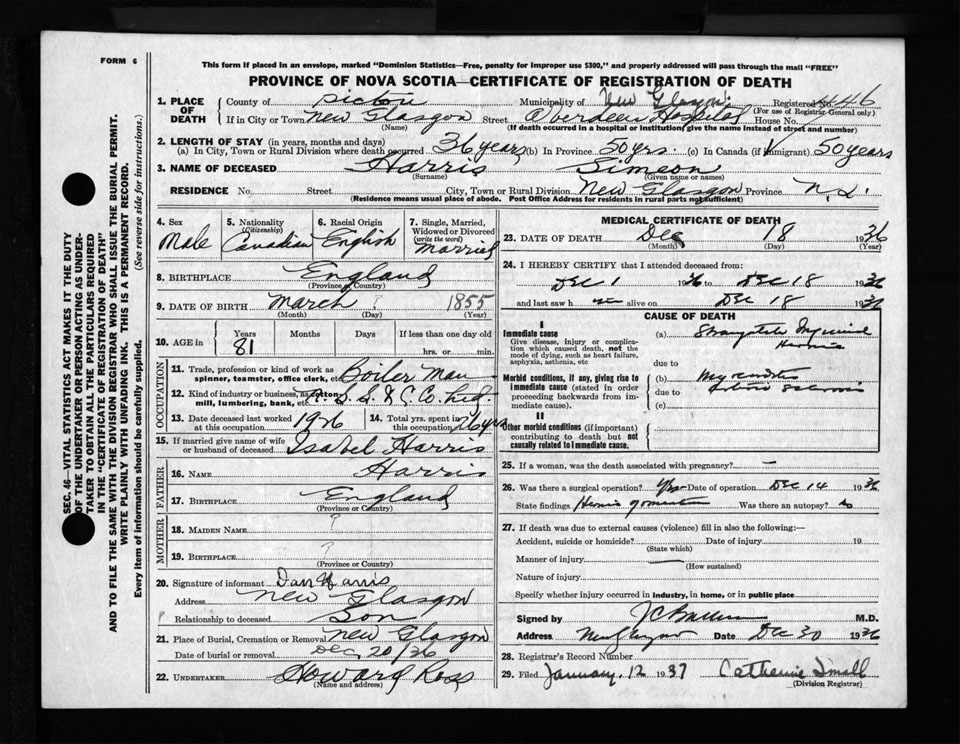 FORM 6
This form if placed in an envelope, marked "Dominion Statistics—Free, penalty for improper use $300," and properly addressed will pass through the mail "FREE"
PROVINCE OF NOVA SCOTIA—CERTIFICATE OF REGISTRATION OF DEATH
1. PLACE OF DEATH
County of Pictou Municipality of New Glasgow Registered No. 446
(For use of Registrar General only)
If in City or Town New Glasgow Street Aberdeen Hospital House No.
(Name) (If death occurred in a hospital or institution, give the name instead of street and number)
2. LENGTH OF STAY (in years, months and days)
(a) In City, Town or Rural Division where death occurred 36 years (b) In Province 50 yrs. (c) In Canada (if immigrant) 50 years
3. NAME OF DECEASED Harris Simeon
(Surname) (Given name or names)
RESIDENCE No. Street City, Town or Rural Division New Glasgow Province N.S.
(Residence means usual place of abode. Post Office Address for residents in rural parts not sufficient)
4. Sex
Male
5. Nationality
(Citizenship)
Canadian
6. Racial Origin
English
7. Single, Married, Widowed or Divorced
(write the word)
Married
8. BIRTHPLACE England
(Province or Country)
9. DATE OF BIRTH March ? 1855
(Month) (Day) (Year)
10. AGE in
Years Months Days If less than one day old
81
hrs. or min.
OCCUPATION
11. Trade, profession or kind of work as
spinner, teamster, office clerk, etc. Boiler Man
12. Kind of industry or business, as cotton
mill, lumbering, bank, etc.
13. Date deceased last worked
at this occupation 1926
14. Total yrs. spent in
this occupation 26 yrs
15. If married give name of wife
or husband of deceased Isabel Harris
FATHER
16. NAME Harris
17. BIRTHPLACE England
(Province or Country)
MOTHER
18. MAIDEN NAME ?
19. BIRTHPLACE ?
(Province or Country)
20. Signature of informant Dan Harris
Address New Glasgow
Relationship to deceased Son
21. Place of Burial, Cremation or Removal New Glasgow
Date of burial or removal Dec, 20/36
22. UNDERTAKER Howard Ross
(Name and address)
MEDICAL CERTIFICATE OF DEATH
23. DATE OF DEATH Dec 18 1936
(Month) (Day) (Year)
24. I HEREBY CERTIFY that I attended deceased from:
Dec 1 1936 to Dec 18 1936
and last saw h alive on Dec 18 1936
CAUSE OF DEATH
I
Immediate cause
Give disease, injury or complication which caused death, not the mode of dying, such as heart failure, asphyxia, asthenia, etc
(a) Strangulated Inguinal
Hernia
due to
Morbid conditions, if any, giving rise to immediate cause (stated in order proceeding backwards from immediate cause).
(b) Myocarditis
due to
(c)
II
Other morbid conditions (if important) contributing to death but not causally related to immediate cause.
25. If a woman, was the death associated with pregnancy? —
26. Was there a surgical operation? Yes Date of operation Dec 14 1936
State findings Was there an autopsy?
27. If death was due to external causes (violence) fill in also the following:—
Accident, suicide or homicide? Date of injury 19
(State which)
Manner of injury
(How sustained)
Nature of injury
Specify whether injury occurred in industry, in home, or in public place
Signed by M.D.
Address New Glasgow Date Dec 30 1936
28. Registrar's Record Number
29. Filed January, 12 1937 Catherine Small
(Division Registrar)
SEC. 46—VITAL STATISTICS ACT MAKES IT THE DUTY
OF THE UNDERTAKER OR PERSON ACTING AS UNDER-
TAKER TO OBTAIN ALL THE PARTICULARS REQUIRED
IN THE "CERTIFICATE OF REGISTRATION OF DEATH"
AND TO FILE THE SAME WITH THE DIVISION REGISTRAR WHO SHALL ISSUE THE BURIAL PERMIT.
WRITE PLAINLY WITH UNFADING INK. THIS IS A PERMANENT RECORD.
Every item of information should be carefully supplied. (See reverse side for instructions.)